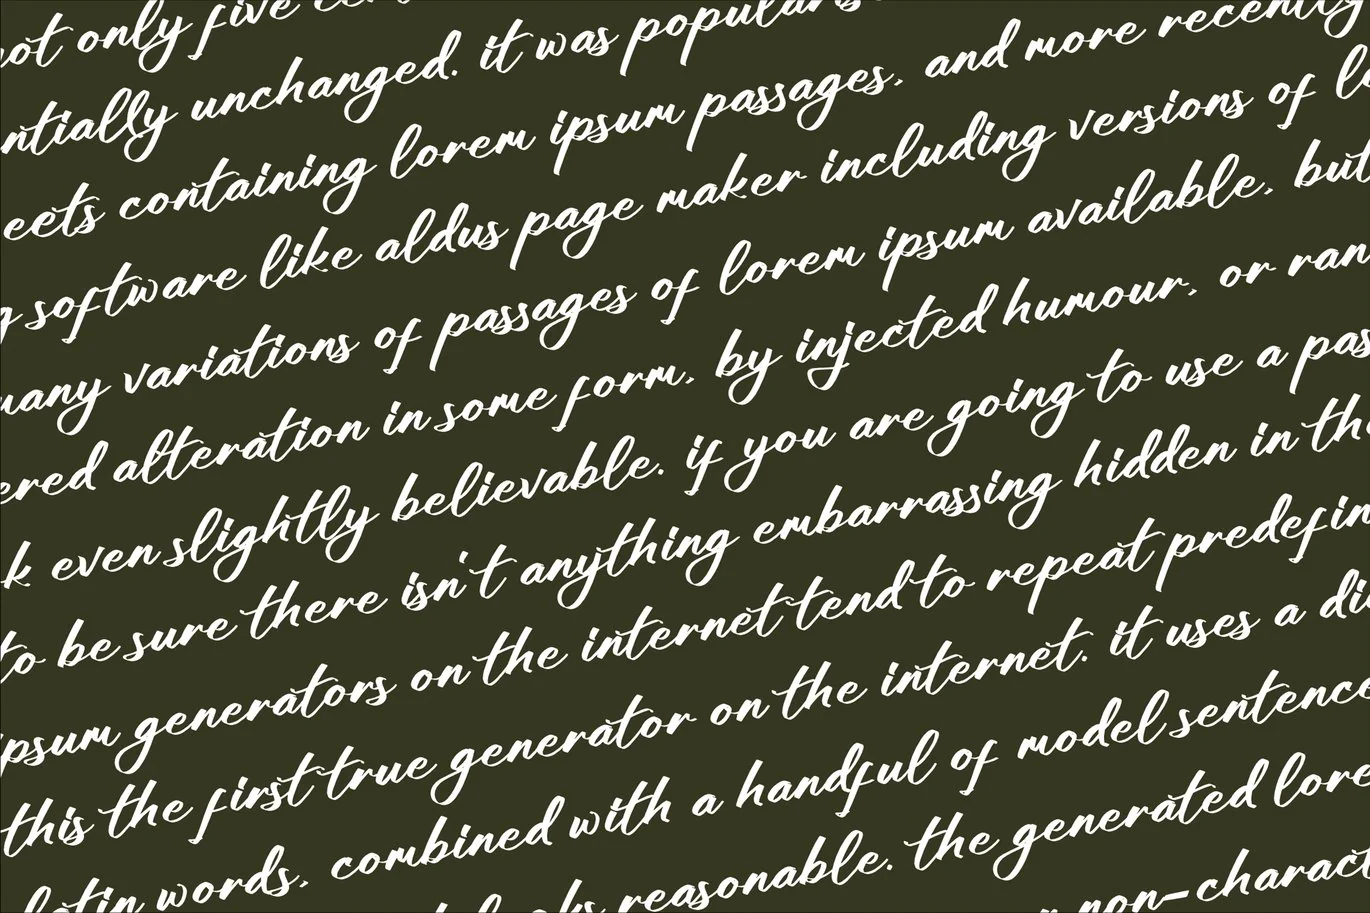 not only five
ntially unchanged. it was popularis
eets containing lorem ipsum passages, and more recently
g software like aldus page maker including versions of lo
many variations of passages of lorem ipsum available, but
ered alteration in some form, by injected humour, or ran
k even slightly believable. if you are going to use a pas
to be sure there isn't anything embarrassing hidden in the
ipsum generators on the internet tend to repeat predefin
this the first true generator on the internet. it uses a di
latin words, combined with a handful of model sentence
reasonable. the generated lore
non-charact